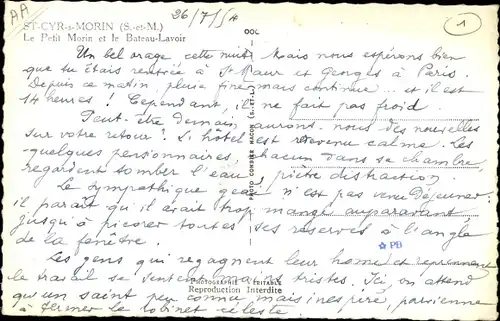 AA
26/7/54
1
ST-CYR-s-MORIN (S.-et-M.)
Le Petit Morin et le Bateau-Lavoir
Un bel orage, cette nuit. Mais nous espérons bien
que tu étais rentrée à St Maur et Georges à Paris.
Depuis ce matin, pluie fine, mais continue... et il est
14 heures ! Cependant, il ne fait pas froid.
Peut-être demain, aurons-nous des nouvelles
sur votre retour ? L'hôtel est revenu calme. Les
quelques pensionnaires, chacun dans sa chambre,
regardent tomber l'eau, piètre distraction.
Le sympathique n'est pas venu déjeuner :
il paraît qu'il avait trop mangé auparavant,
jusqu'à picorer toutes ses réserves à l'angle
de la fenêtre.
Les gens qui regagnent leur home et reprennent
le travail se sentent moins tristes. Ici, on attend
qu'un saint peu connu mais inespéré, parvienne
à fermer le robinet céleste.
PHOTO COMBIER MACON (S.-et-L.)
PHOTOGRAPHIE VÉRITABLE
Reproduction Interdite
PB